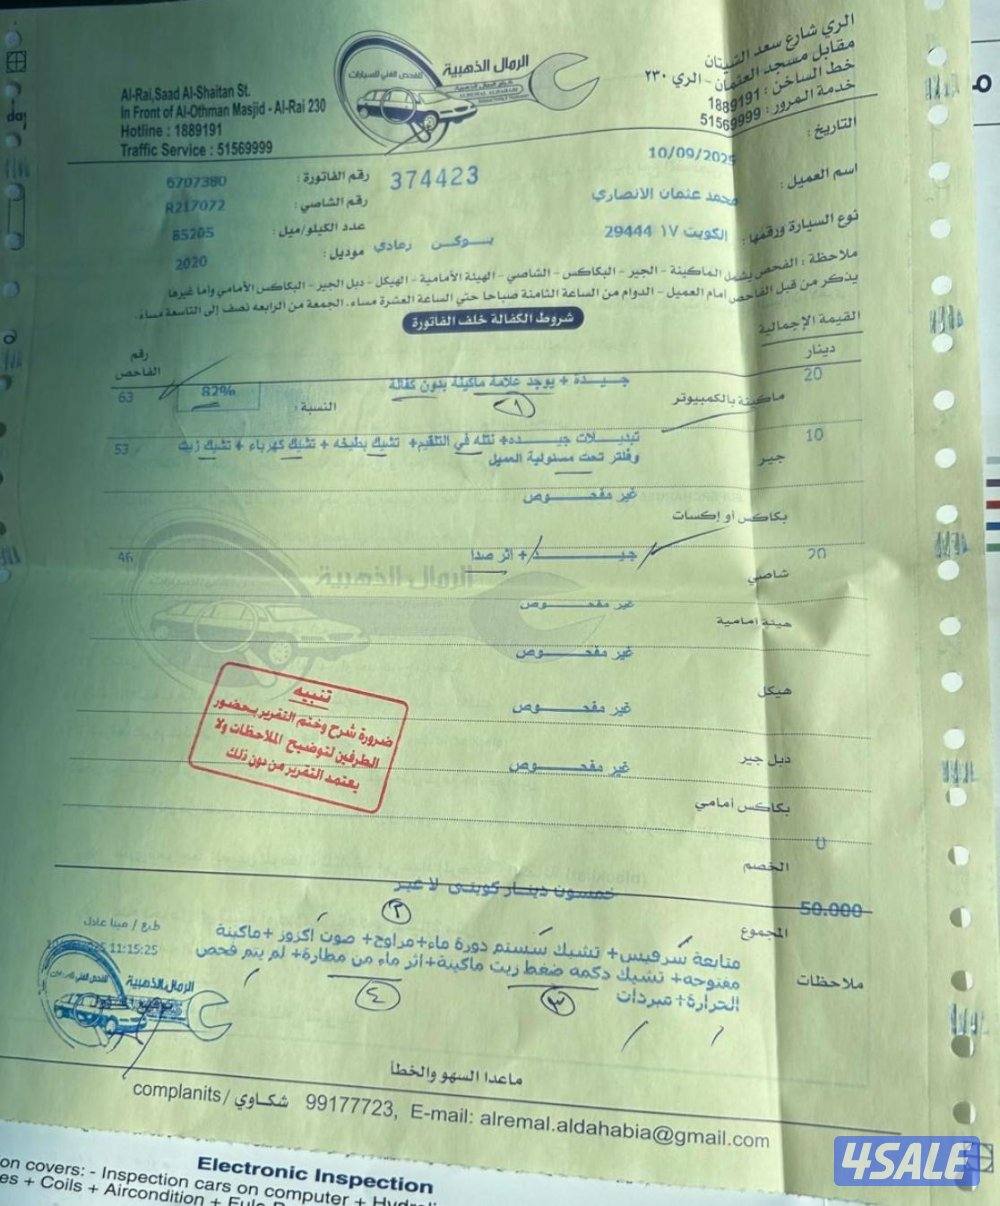 الرمال الذهبية
للفحص الفني للسيارات
ALREMAL ALDAHABI
Al-Rai,Saad Al-Shaitan St.
In Front of Al-Othman Masjid - Al-Rai 230
Hotline : 1889191
Traffic Service : 51569999
الري شارع سعد الشيتان
مقابل مسجد العثمان - الري ٢٣٠
خط الساخن : 1889191
خدمة المرور : 51569999
التاريخ : 10/09/2025
374423
رقم الفاتورة : 6707380
اسم العميل : محمد عثمان الانصاري
رقم الشاصي : R217072
نوع السيارة ورقمها : الكويت ١٧ 29444
عدد الكيلو/ميل : 85205
رمادي
موديل : 2020
ملاحظة : الفحص يشمل الماكينة - الجير - البكاكس - الشاصي - الهيئة الأمامية - الهيكل - دبل الجير - البكاكس الأمامي وأما غيرها
يذكر من قبل الفاحص أمام العميل - الدوام من الساعة الثامنة صباحا حتى الساعة العشرة مساء ، الجمعة من الرابعه نصف إلى التاسعة مساء .
شروط الكفالة خلف الفاتورة
القيمة الإجمالية
دينار
رقم الفاحص
20
ماكينة بالكمبيوتر
جيدة + يوجد علامة ماكينة بدون كفالة
١
النسبة : 82%
63
10
جير
تبديلات جيده+ نتله في التلقيم+ تشيك بطيخه + تشيك كهرباء + تشيك زيت
وفلتر تحت مسئولية العميل
53
غير مفحوص
بكاكس أو إكسات
20
شاصي
جيد + اثر صدا
46
غير مفحوص
هيئة امامية
غير مفحوص
هيكل
غير مفحوص
دبل جير
غير مفحوص
بكاكس امامي
تنبيه
ضرورة شرح وختم التقرير بحضور
الطرفين لتوضيح الملاحظات ولا
يعتمد التقرير من دون ذلك
0
الخصم
خمسون دينار كويتى لا غير
50.000
المجموع
٢
طبع / مينا عادل
11:15:25
ملاحظات
متابعة سرفيس+ تشيك سستم دورة ماء+ مراوح+ صوت اكزوز +ماكينة
مفتوحه+ تشيك دكمه ضغط زيت ماكينة+ اثر ماء من مطارة+ لم يتم فحص
الحرارة+ مبردات
٣
٤
الرمال الذهبية
ماعدا السهو والخطأ
complanits / شكاوي 99177723, E-mail: alremal.aldahabia@gmail.com
Electronic Inspection
on covers: - Inspection cars on computer +
es + Coils + Aircondition +
4SALE